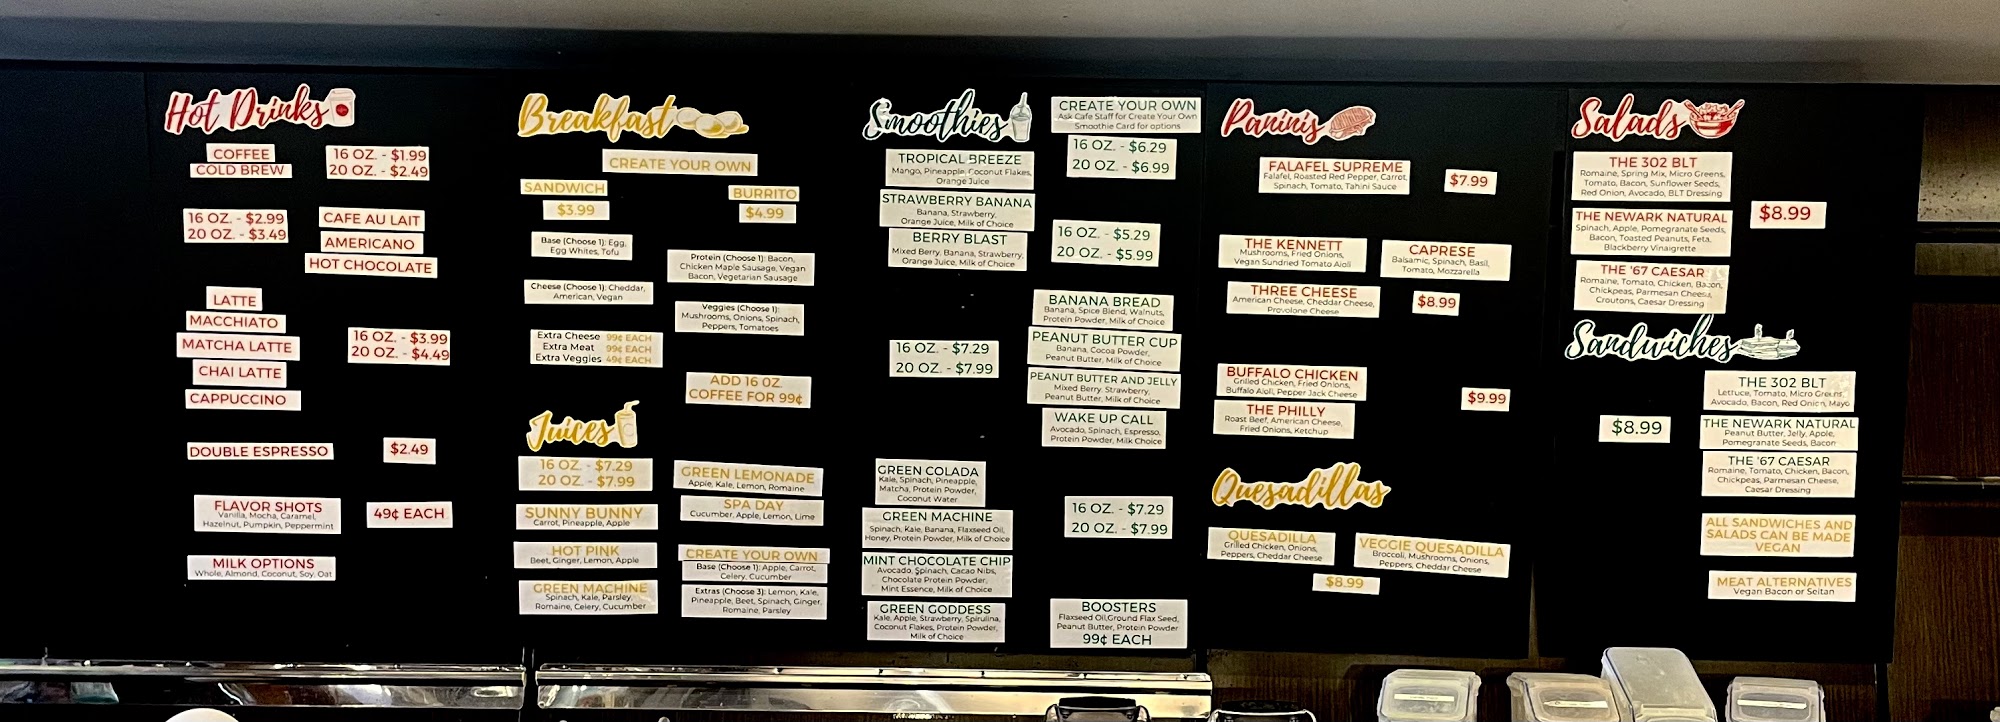 Hot Drinks
COFFEE
COLD BREW
16 OZ. - $1.99
20 OZ. - $2.49
16 OZ. - $2.99
20 OZ. - $3.49
CAFE AU LAIT
AMERICANO
HOT CHOCOLATE
LATTE
MACCHIATO
MATCHA LATTE
CHAI LATTE
CAPPUCCINO
16 OZ. - $3.99
20 OZ. - $4.49
DOUBLE ESPRESSO
$2.49
FLAVOR SHOTS
Vanilla, Mocha, Caramel,
Hazelnut, Pumpkin, Peppermint
49¢ EACH
MILK OPTIONS
Whole, Almond, Coconut, Soy, Oat
Breakfast
CREATE YOUR OWN
SANDWICH
$3.99
BURRITO
$4.99
Base (Choose 1): Egg,
Egg Whites, Tofu
Protein (Choose 1): Bacon,
Chicken Maple Sausage, Vegan
Bacon, Vegetarian Sausage
Cheese (Choose 1): Cheddar,
American, Vegan
Veggies (Choose 1):
Mushrooms, Onions, Spinach,
Peppers, Tomatoes
Extra Cheese 99¢ EACH
Extra Meat 99¢ EACH
Extra Veggies 49¢ EACH
ADD 16 OZ.
COFFEE FOR 99¢
Juices
16 OZ. - $7.29
20 OZ. - $7.99
GREEN LEMONADE
Apple, Kale, Lemon, Romaine
SUNNY BUNNY
Carrot, Pineapple, Apple
SPA DAY
Cucumber, Apple, Lemon, Lime
HOT PINK
Beet, Ginger, Lemon, Apple
GREEN MACHINE
Spinach, Kale, Parsley,
Romaine, Celery, Cucumber
CREATE YOUR OWN
Base (Choose 1): Apple, Carrot,
Celery, Cucumber
Extras (Choose 3): Lemon, Kale,
Pineapple, Beet, Spinach, Ginger,
Romaine, Parsley
Smoothies
CREATE YOUR OWN
Ask Cafe Staff for Create Your Own
Smoothie Card for options
16 OZ. - $6.29
20 OZ. - $6.99
TROPICAL BREEZE
Mango, Pineapple, Coconut Flakes,
Orange Juice
STRAWBERRY BANANA
Banana, Strawberry,
Orange Juice, Milk of Choice
BERRY BLAST
Mixed Berry, Banana, Strawberry,
Orange Juice, Milk of Choice
16 OZ. - $5.29
20 OZ. - $5.99
BANANA BREAD
Banana, Spice Blend, Walnuts,
Protein Powder, Milk of Choice
PEANUT BUTTER CUP
Banana, Cocoa Powder,
Peanut Butter, Milk of Choice
PEANUT BUTTER AND JELLY
Mixed Berry, Strawberry,
Peanut Butter, Milk of Choice
WAKE UP CALL
Avocado, Spinach, Espresso,
Protein Powder, Milk Choice
16 OZ. - $7.29
20 OZ. - $7.99
GREEN COLADA
Kale, Spinach, Pineapple,
Matcha, Protein Powder,
Coconut Water
GREEN MACHINE
Spinach, Kale, Banana, Flaxseed Oil,
Honey, Protein Powder, Milk of Choice
MINT CHOCOLATE CHIP
Avocado, Spinach, Cacao Nibs,
Chocolate Protein Powder,
Mint Essence, Milk of Choice
GREEN GODDESS
Kale, Apple, Strawberry, Spirulina,
Coconut Flakes, Protein Powder,
Milk of Choice
16 OZ. - $7.29
20 OZ. - $7.99
BOOSTERS
Flaxseed Oil,Ground Flax Seed,
Peanut Butter, Protein Powder
99¢ EACH
Paninis
FALAFEL SUPREME
Falafel, Roasted Red Pepper, Carrot,
Spinach, Tomato, Tahini Sauce
$7.99
THE KENNETT
Mushrooms, Fried Onions,
Vegan Sundried Tomato Aioli
CAPRESE
Balsamic, Spinach, Basil,
Tomato, Mozzarella
THREE CHEESE
American Cheese, Cheddar Cheese,
Provolone Cheese
$8.99
BUFFALO CHICKEN
Grilled Chicken, Fried Onions,
Buffalo Aioli, Pepper Jack Cheese
THE PHILLY
Roast Beef, American Cheese,
Fried Onions, Ketchup
$9.99
Quesadillas
QUESADILLA
Grilled Chicken, Onions,
Peppers, Cheddar Cheese
VEGGIE QUESADILLA
Broccoli, Mushrooms, Onions,
Peppers, Cheddar Cheese
$8.99
Salads
THE 302 BLT
Romaine, Spring Mix, Micro Greens,
Tomato, Bacon, Sunflower Seeds,
Red Onion, Avocado, BLT Dressing
THE NEWARK NATURAL
Spinach, Apple, Pomegranate Seeds,
Bacon, Toasted Peanuts, Feta,
Blackberry Vinaigrette
THE '67 CAESAR
Romaine, Tomato, Chicken, Bacon,
Chickpeas, Parmesan Cheese,
Croutons, Caesar Dressing
$8.99
Sandwiches
THE 302 BLT
Lettuce, Tomato, Micro Greens,
Avocado, Bacon, Red Onion, Mayo
THE NEWARK NATURAL
Peanut Butter, Jelly, Apple,
Pomegranate Seeds, Bacon
THE '67 CAESAR
Romaine, Tomato, Chicken, Bacon,
Chickpeas, Parmesan Cheese,
Caesar Dressing
$8.99
ALL SANDWICHES AND
SALADS CAN BE MADE
VEGAN
MEAT ALTERNATIVES
Vegan Bacon or Seitan